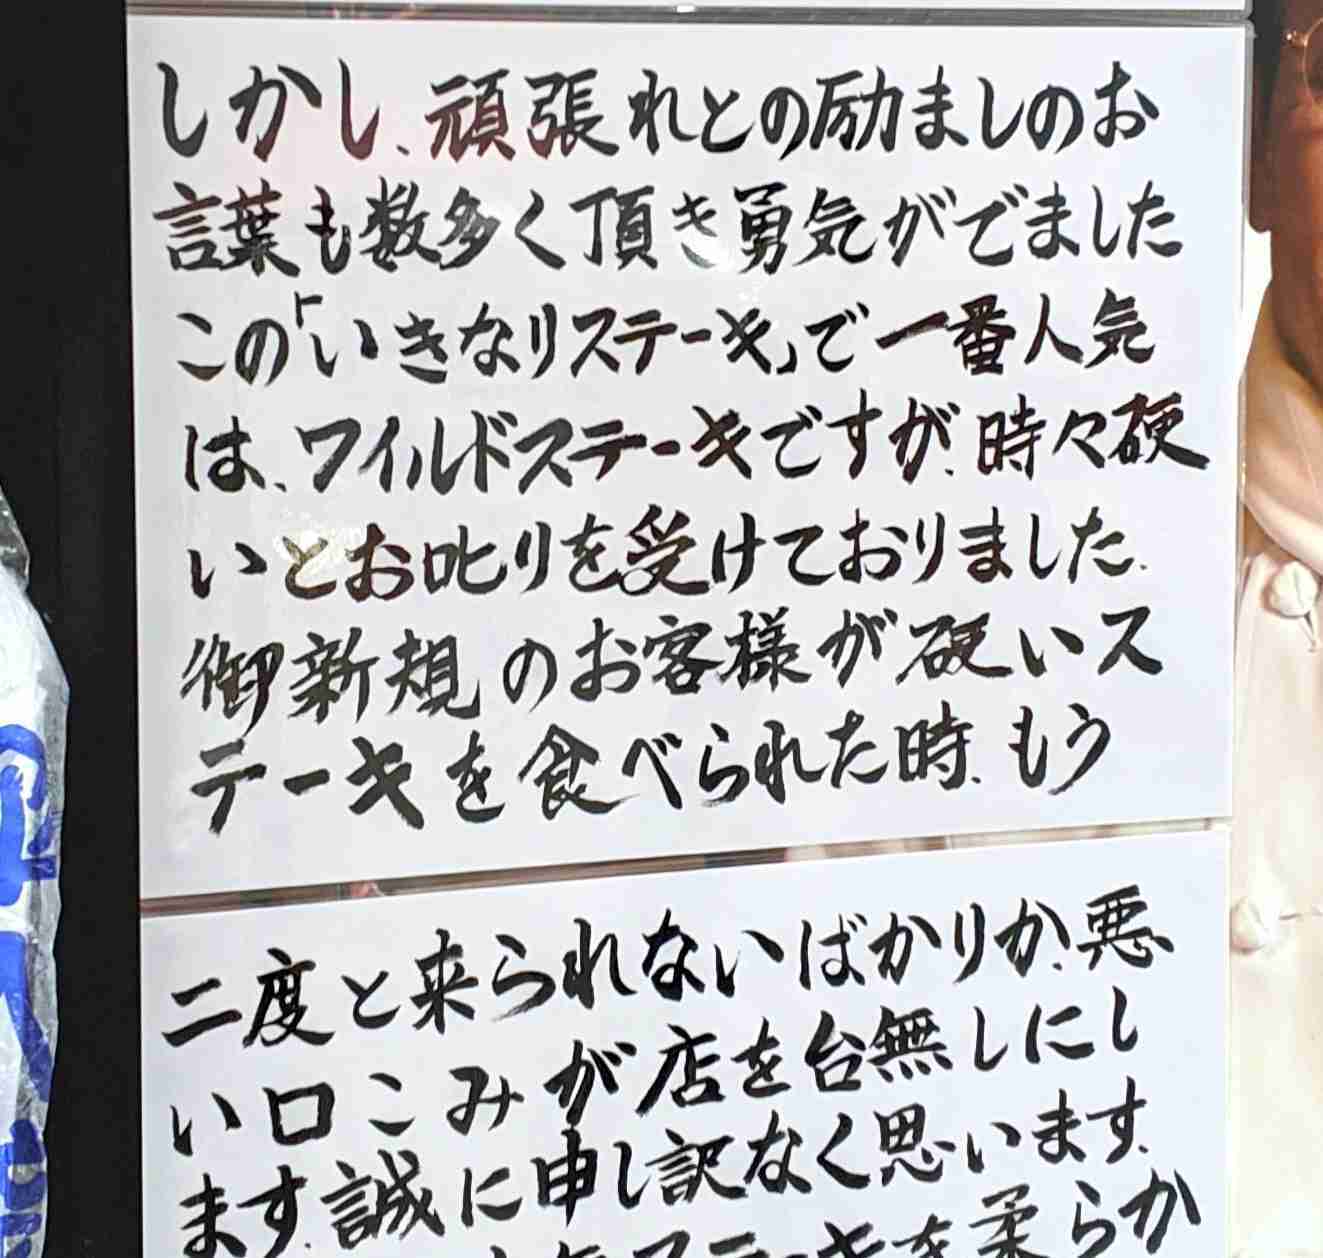 しかし、頑張れとの励ましのお
言葉も数多く頂き勇気がでました
この「いきなりステーキ」で一番人気
は、ワイルドステーキですが、時々硬
いとお叱りを受けておりました、
御新規のお客様が硬いス
テーキを食べられた時、もう
二度と来られないばかりか、悪
い口こみが店を台無しにし
ます、誠に申し訳なく思います、
ステーキを柔らか